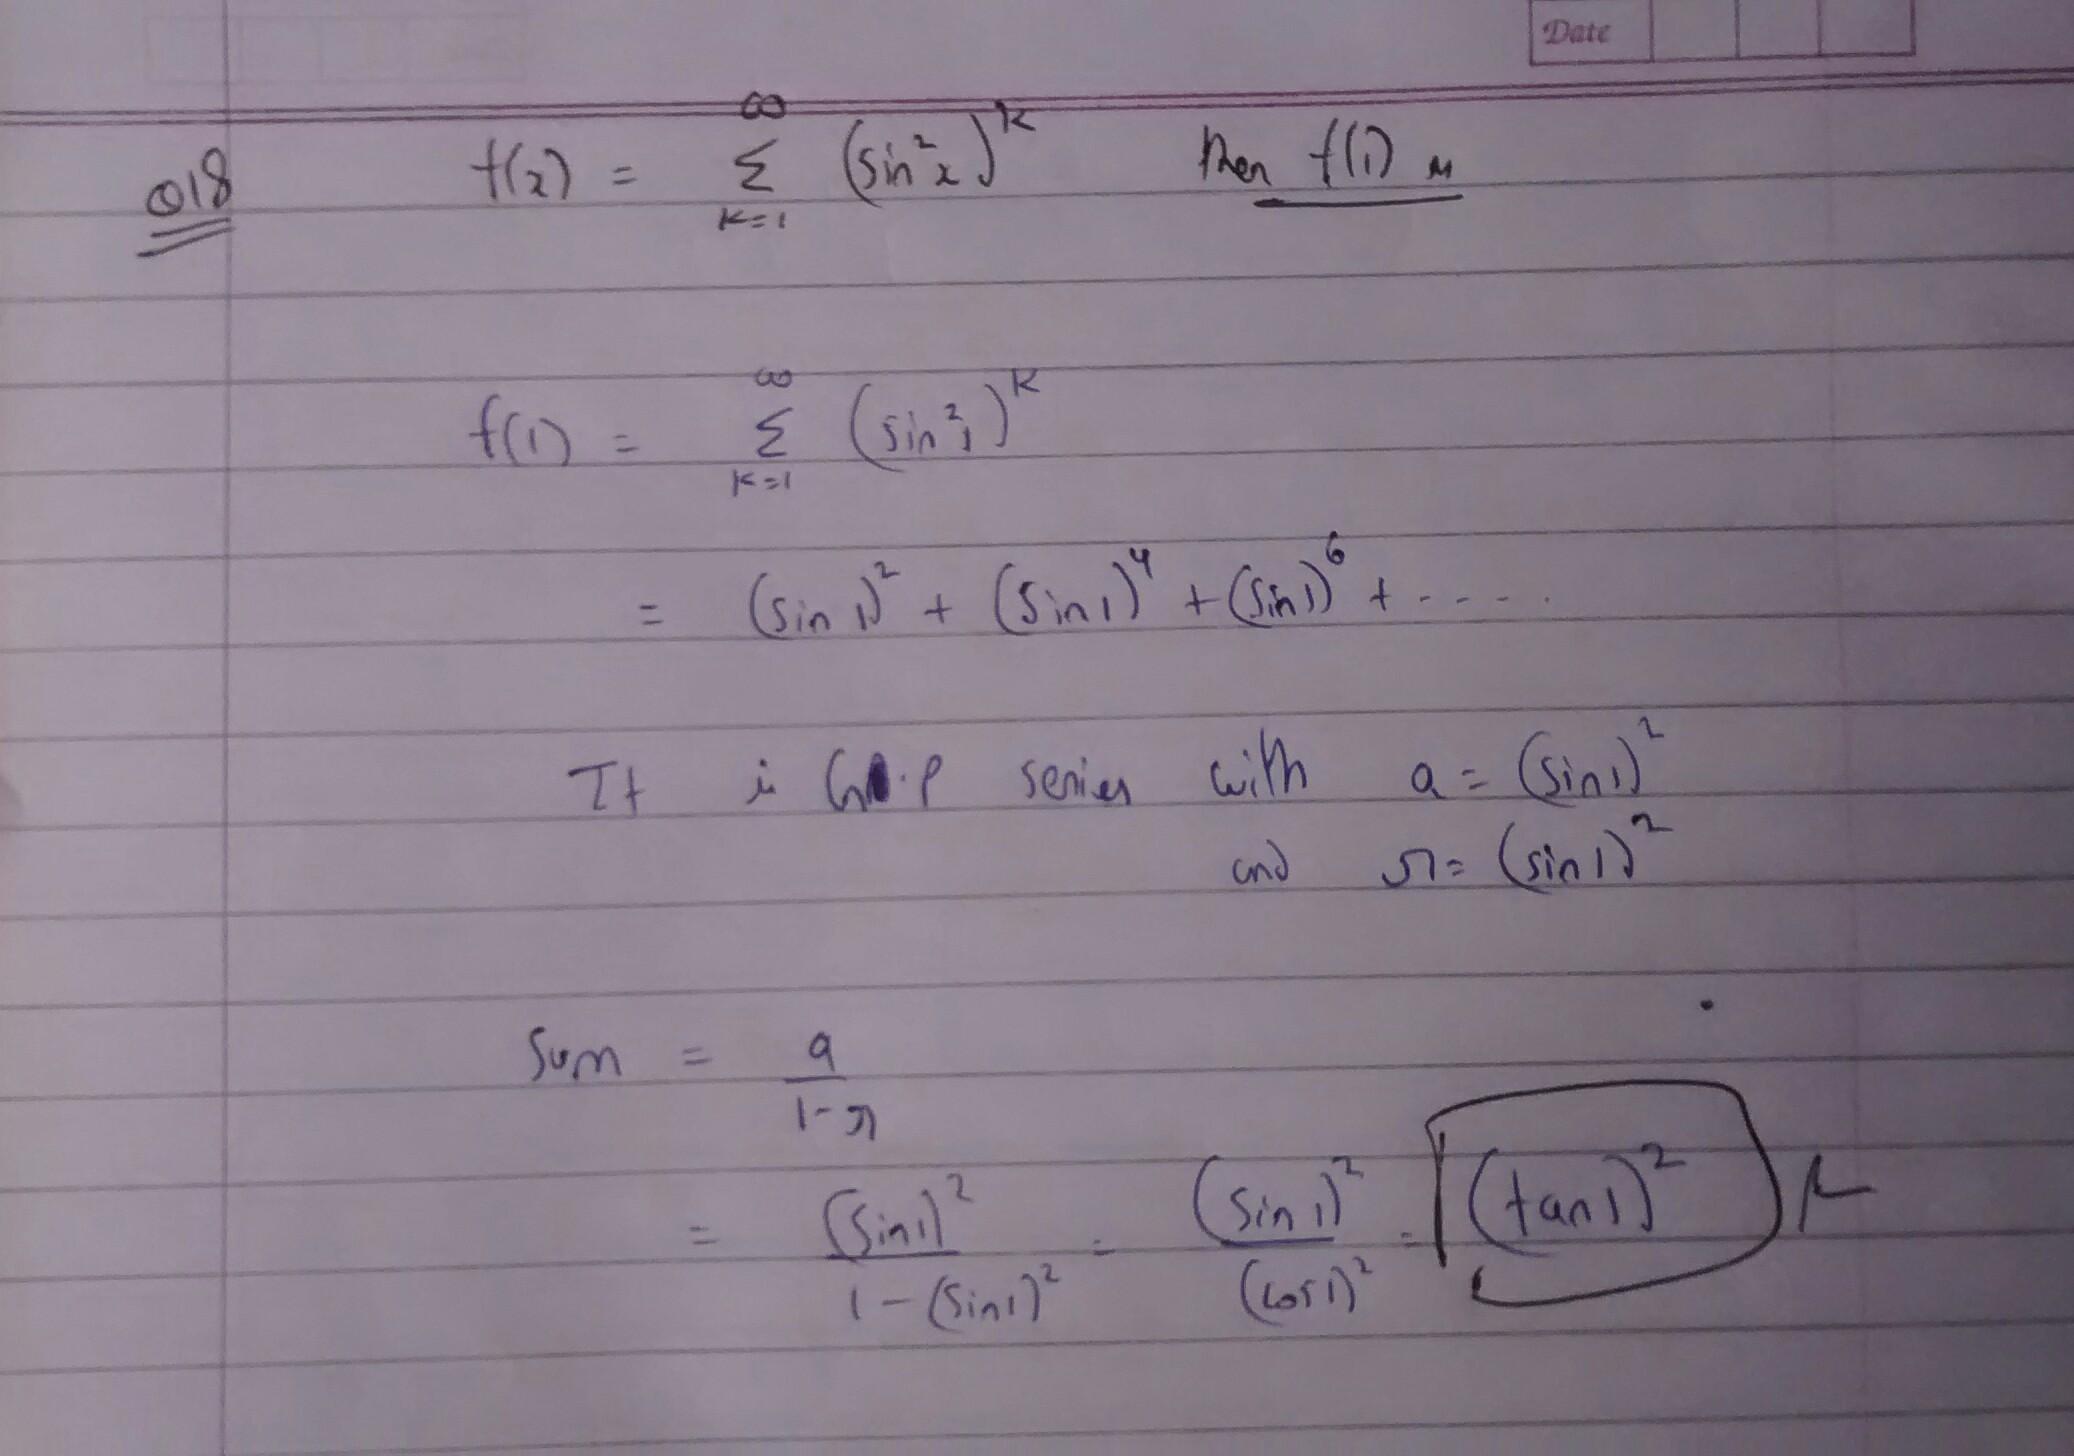 Date
Q18 f(x) = ∞ Σ k=1 (sin²x)^k then f(1) is
f(1) = ∞ Σ k=1 (sin²1)^k
= (sin 1)² + (sin 1)⁴ + (sin 1)⁶ + - - - - .
It is G.P series with a = (sin 1)²
and r = (sin 1)²
Sum = a / 1-r
= (sin 1)² / 1 - (sin 1)² = (sin 1)² / (cos 1)² = (tan 1)²